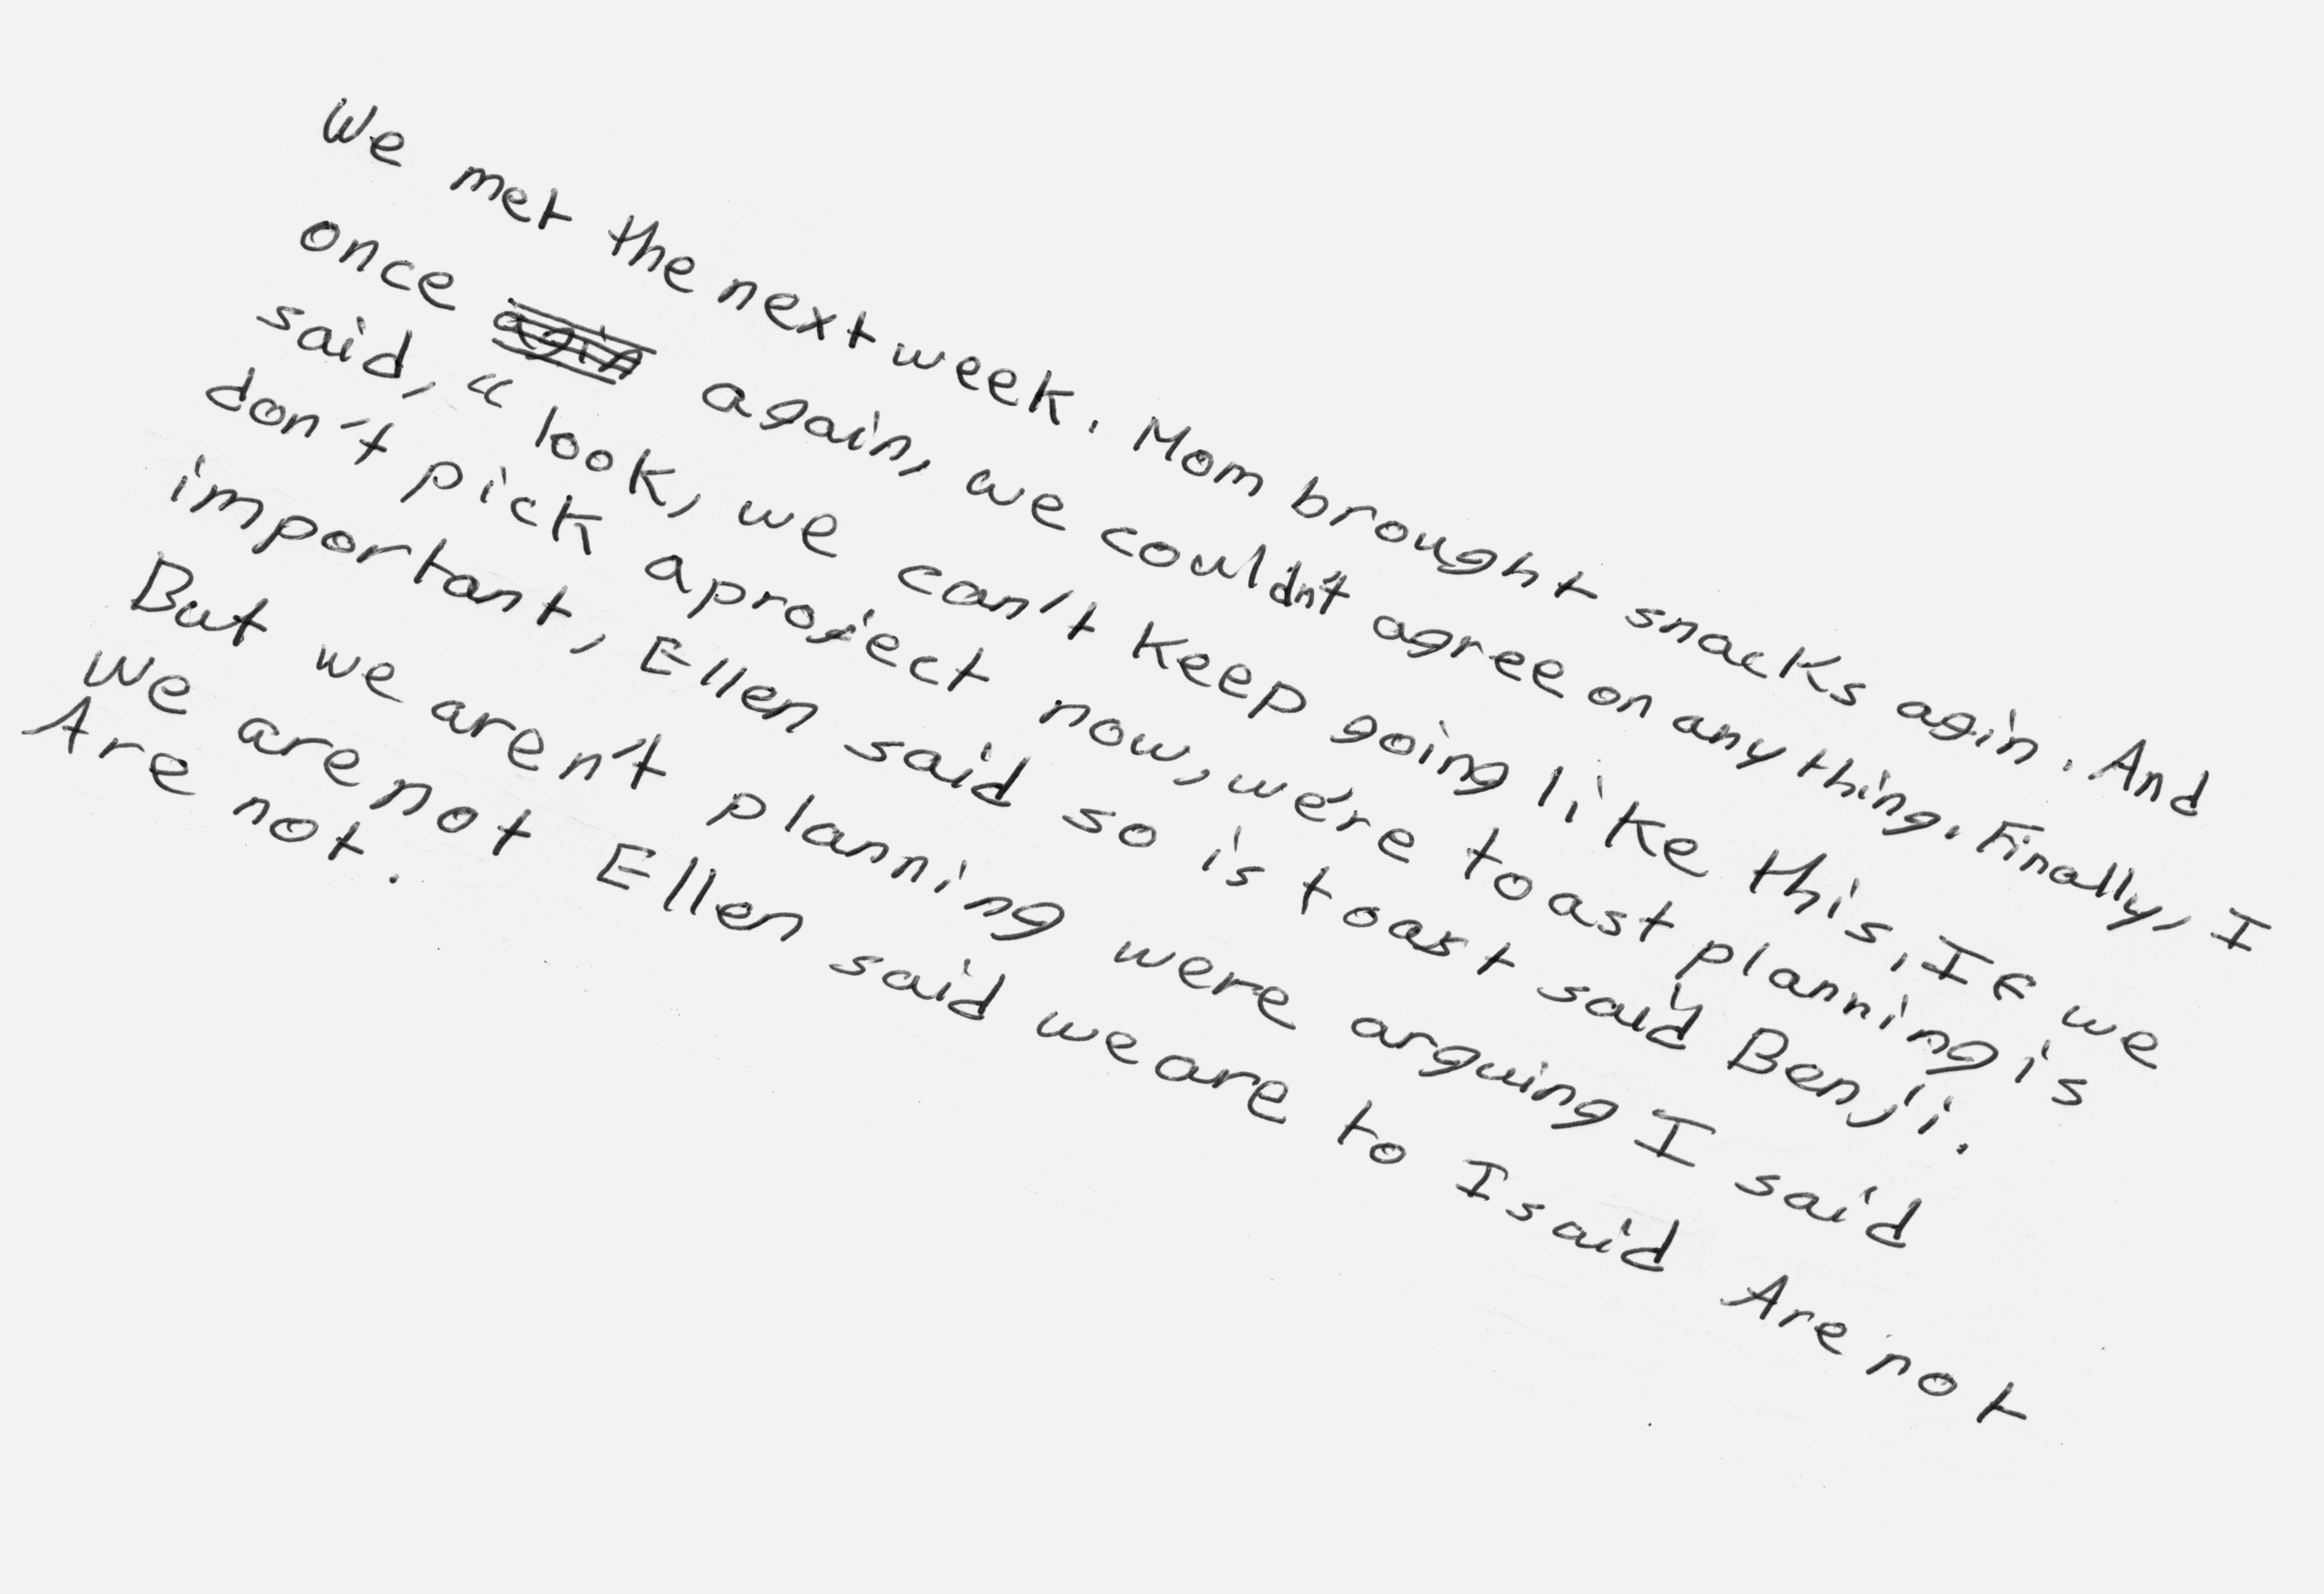 We met the next week. Mom brought snacks agin. And
once again, we couldn't agree on any thing. Finally, I
said, “look, we can't keep going like this. If we
don't pick a project now, we're toast planning is
important, Ellen said so is toast said Benji.
But we aren't planning were arguing I said
We are not Ellen said we are to I said Are not
Are not.